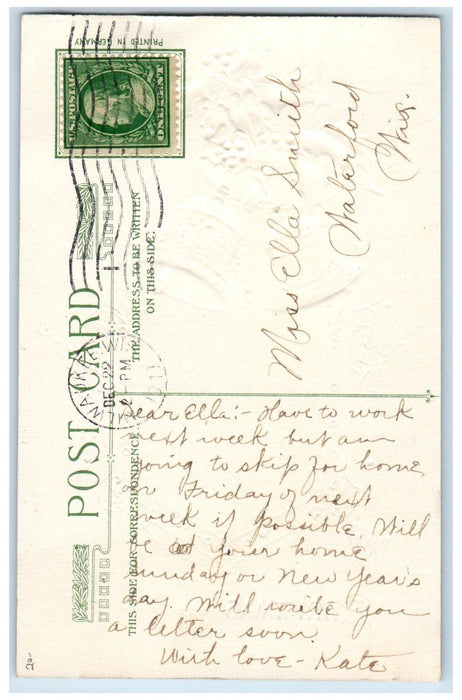 PRINTED IN GERMANY
U.S. POSTAGE
ONE CENT
POST CARD
THE ADDRESS TO BE WRITTEN
ON THIS SIDE.
THIS SIDE FOR CORRESPONDENCE
MILWAUKEE WIS.
DEC 22
2-PM
1911
Miss Ella Smith
Waterford
Wis.
Dear Ella:- Have to work
next week but am
going to skip for home
on Friday of next
week if possible. Will
be at your home
sunday or New Year's
day. Will write you
a letter soon.
With love - Kate
20-